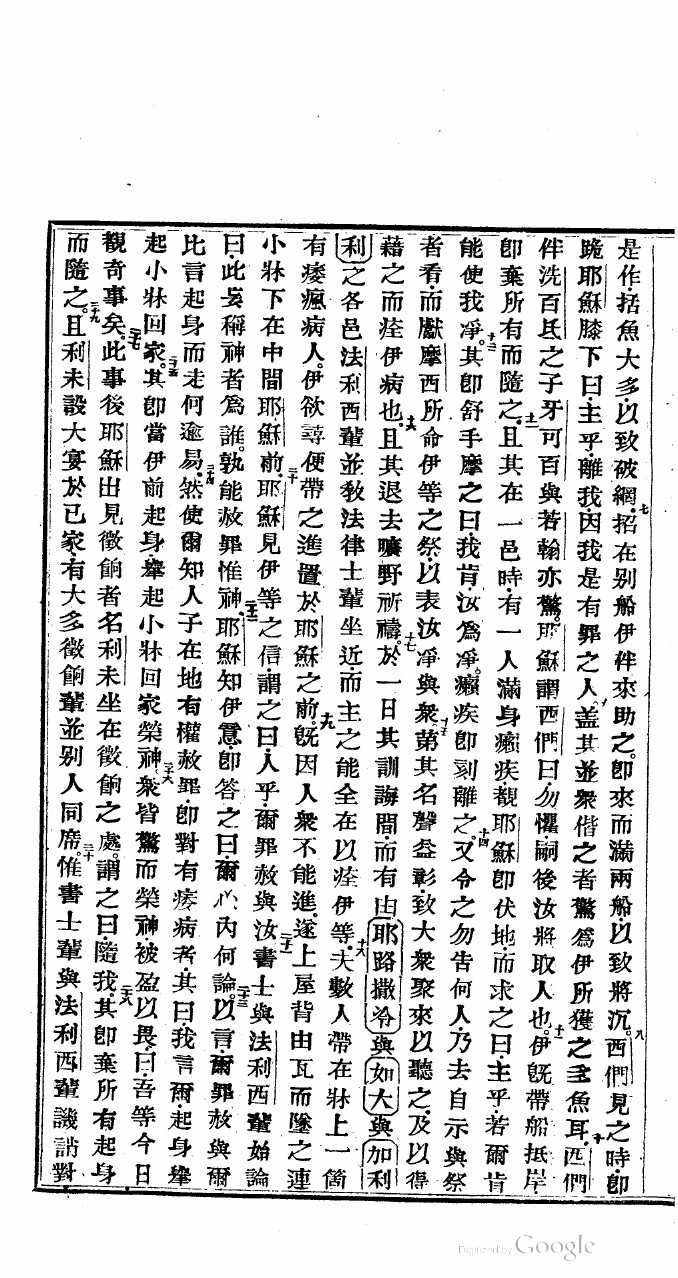 是作括魚大多以致被網七招在别船伊伴來助之即來而滿兩船以致將沉八西們見之時即
跪耶穌膝下曰主乎離我因我是有罪之人九盖其並衆偕之者驚爲伊所獲之多魚耳十西們
伴洗百氐之子牙可百與若翰亦驚耶穌謂西們曰勿懼嗣後汝將取人也十一伊旣帶船抵岸
即棄所有而隨之十二且其在一邑時有一人滿身癩疾覩耶穌即伏地而求之曰主乎若爾肯
能使我凈十三其即舒手摩之曰我肯汝爲凈癩疾即刻離之十四又令之勿告何人乃去自示與祭
者看而獻摩西所命伊等之祭以表汝凈與衆十五苐其名聲益彰致大衆聚來以聽之及以得
藉之而痊伊病也十六且其退去曠野祈禱十七於一日其訓誨間而有由耶路撒冷與如大與加利
利之各邑法利西輩並敎法律士輩坐近而主之能全在以痊伊等十八夫數人帶在牀上一箇
有痿瘋病人伊欲尋便帶之進置於耶穌之前十九旣因人衆不能進遂上屋背由瓦而墜之連
小牀下在中間耶穌前二十耶穌見伊等之信謂之曰人乎爾罪赦與汝二十一書士與法利西輩始論
曰此妄稱神者爲誰孰能赦罪惟神二十二耶穌知伊意即答之曰爾心內何論二十三以言爾罪赦與爾
比言起身而走何逾易二十四然使爾知人子在地有權赦罪即對有痿病者其曰我言爾起身舉
起小牀回家二十五其即當伊前起身舉起小牀回家榮神二十六衆皆驚而榮神被盈以畏曰吾等今日
觀奇事矣二十七此事後耶穌出見徵餉者名利未坐在徵餉之處謂之曰隨我二十八其即棄所有起身
而隨之二十九且利未設大宴於已家有大多徵餉輩並别人同席三十惟書士輩與法利西輩譏誚對
Digitized by Google